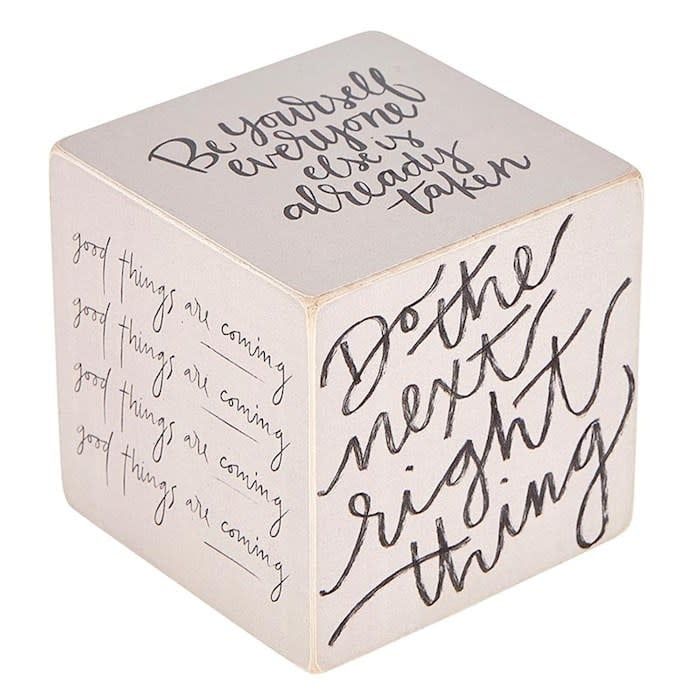 Be yourself
everyone
else is
already
taken
good things are coming
good things are coming
good things are coming
good things are coming
Do the
next
right
thing